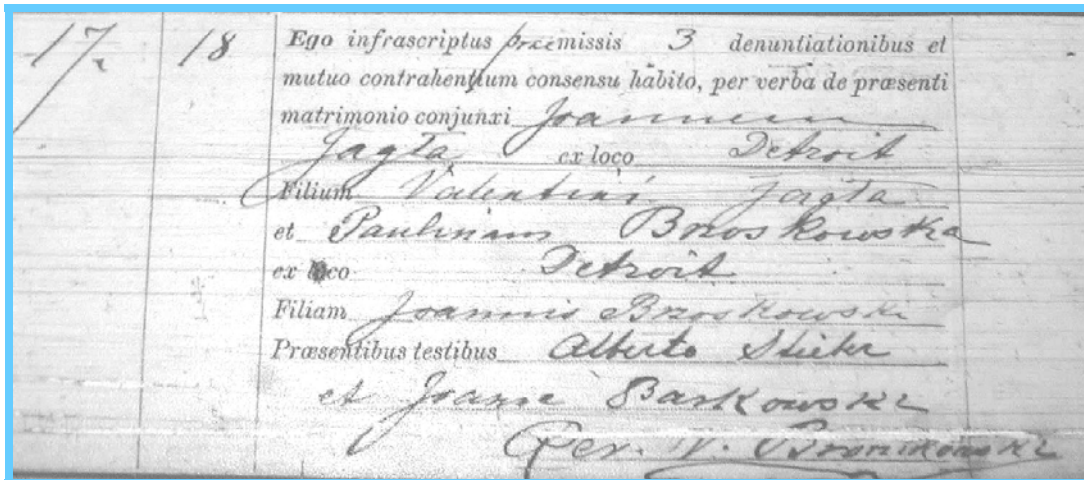 17. 18 Ego infrascriptus præmissis 3 denuntiationibus et
mutuo contrahentium consensu habito, per verba de præsenti
matrimonio conjunxi Joannem
Jagła ex loco Detroit
Filium Valentini Jagła
et Paulinam Brzoskowska
ex loco Detroit
Filiam Joannis Brzoskowski
Præsentibus testibus Alberto Stieler
et Joanne Barkowski
Rev. W. Bronikowski